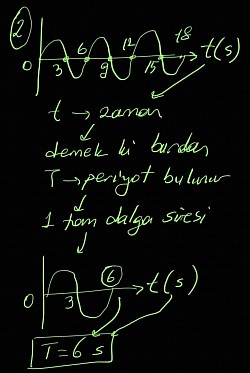 2
6 12 18
0 3 9 15 t(s)
t → zaman
demek ki burdan
T → periyot bulunur
1 tam dalga süresi
6
0 3 t(s)
T = 6 s